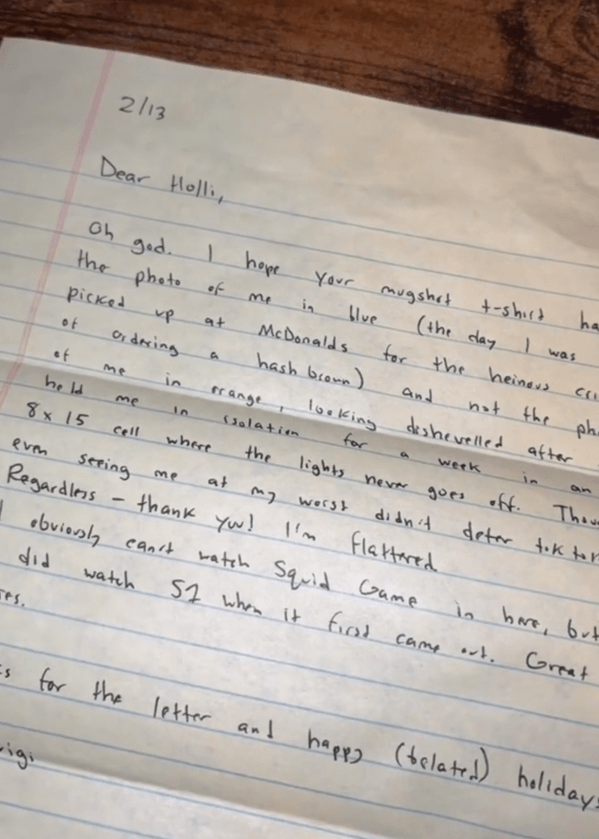 2/13
Dear Holli,
Oh god. I hope your mugshot t-shirt ha
the photo of me in blue (the day I was
picked up at McDonalds for the heinous cri
of ordering a hash brown) and not the pho
of me in orange, looking dishevelled after
held me in isolation for a week in an
8 x 15 cell where the lights never goes off. Thou
even seeing me at my worst didn't deter tok tok
Regardless - thank you! I'm flattered
I obviously can't watch Squid Game in here, but
did watch S1 when it first came out. Great
ies.
s for the letter and happy (belated) holidays
igi